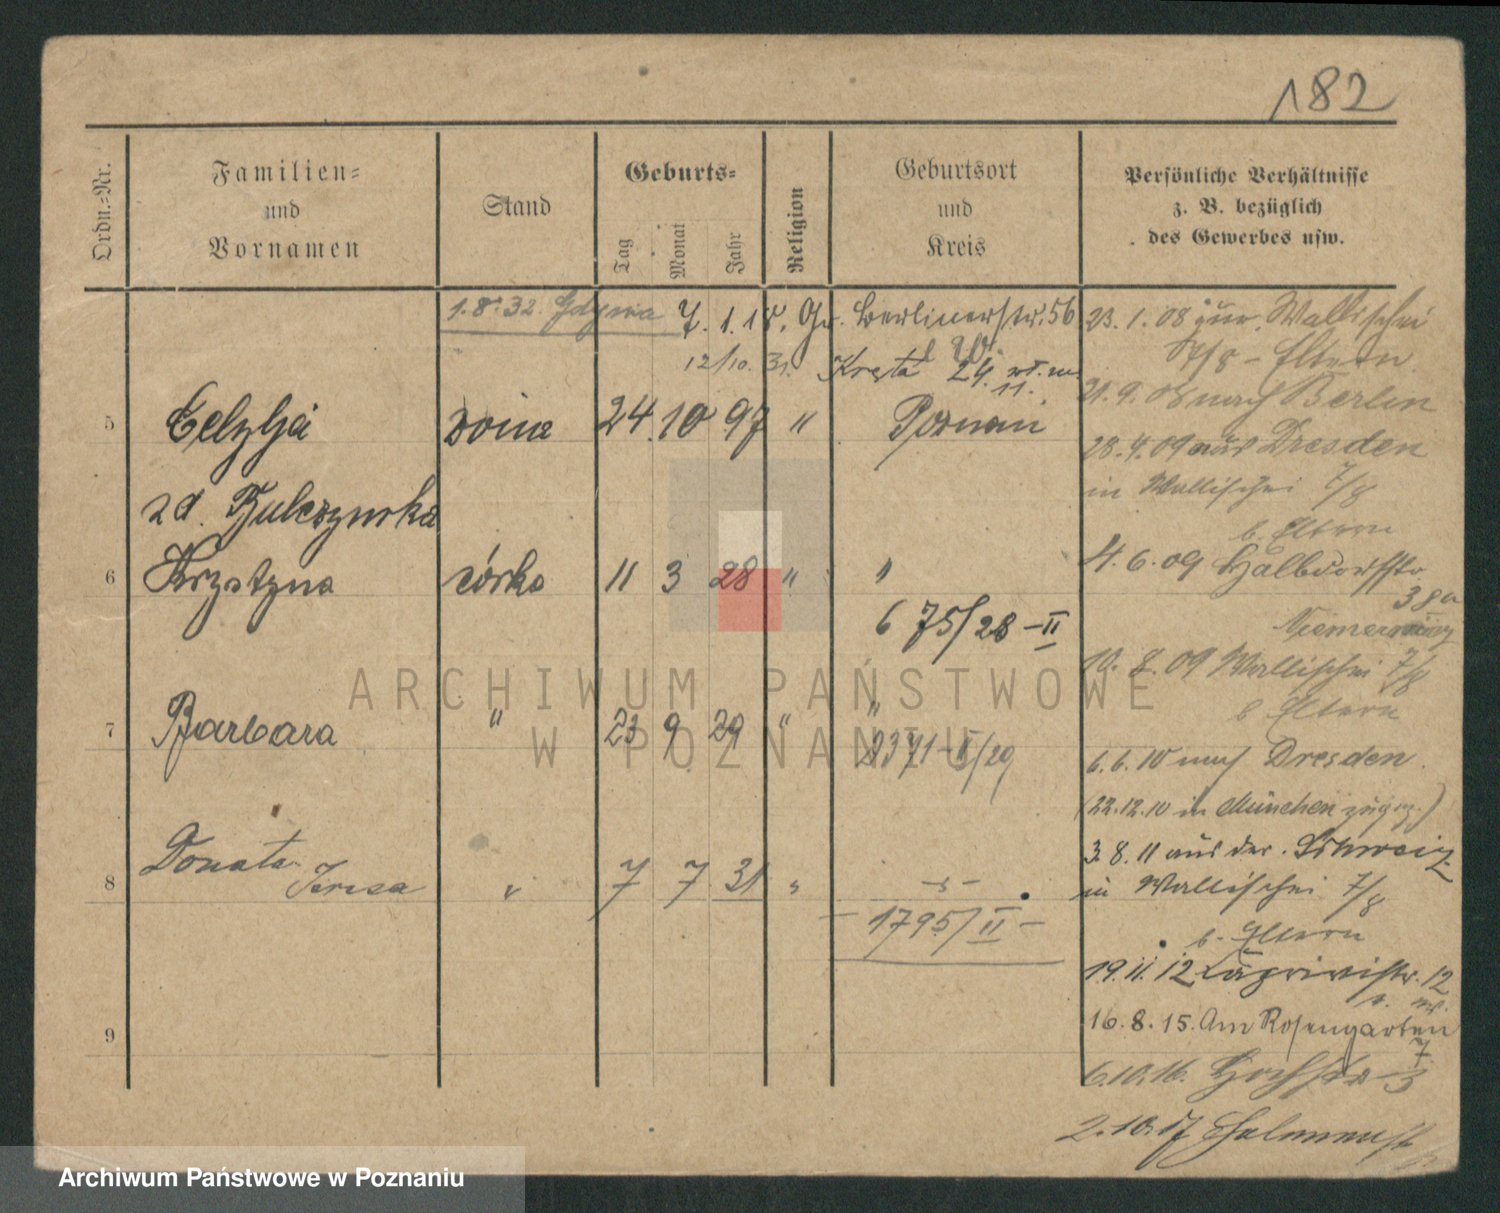 182
Ordn.-Nr.
Familien-
und
Vornamen
Stand
Geburts-
Tag
Monat
Jahr
Religion
Geburtsort
und
Kreis
Persönliche Verhältnisse
z. B. bezüglich
des Gewerbes usw.
1.8.32. Gdynia
7. 1. 18. Gr. Berlinerstr. 56
12/10. 31. Kręta 24
11.
5 żona 24 10 97 " Poznań
zd.
6 Krystyna córka 11 3 28 " "
6 75/28 - II
7 Barbara " 23 9 29 " "
2371 - II/29
8 Donata
Teresa " 7 7 31 "
1795/II -
9
23. 1. 08 zur. Wallischei
7/8 - Eltern
21. 9. 08 nach Berlin
28. 4. 09 aus Dresden
in Wallischei 7/8
b. Eltern
4. 6. 09 Halbdorfstr.
38a
10. 8. 09 Wallischei 7/8
b Eltern
6. 6. 10 nach Dresden.
(22.12.10 in München zugez.)
3. 8. 11 aus der Schweiz
in Wallischei 7/8
b. Eltern
19. 11. 12 Caprivistr. 12
16. 8. 15. Am Rosengarten
7
6.10.16. Hochstr 3
2.10.17
ARCHIWUM PAŃSTWOWE
W POZNANIU
Archiwum Państwowe w Poznaniu